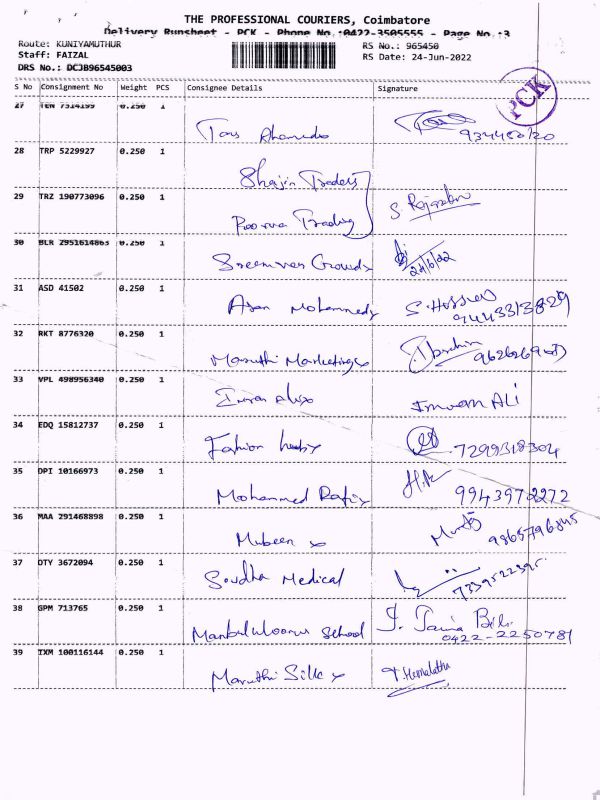 THE PROFESSIONAL COURIERS, Coimbatore
Delivery Runsheet - PCK - Phone No.:0422-3505555 - Page No.:3
Route: KUNIYAMUTHUR
RS No.: 965450
Staff: FAIZAL
RS Date: 24-Jun-2022
DRS No.: DCJB96545003
PCK
S No Consignment No Weight PCS Consignee Details Signature
27 TEN 7514199 0.250 1
28 TRP 5229927 0.250 1 Shajin Traders
29 TRZ 190773096 0.250 1 Poorva Trading S. Rajasekar
30 BLR 2951614863 0.250 1
24/6/22
31 ASD 41502 0.250 1 Mohammed
9443313829
32 RKT 8776320 0.250 1 Maruthi Marketing Ibrahim
33 VPL 498956340 0.250 1 Imran Ali IMRAN ALI
34 EDQ 15812737 0.250 1 Fashion 7299318304
35 DPI 10166973 0.250 1 Mohammed Rafi 9943972272
36 MAA 291468898 0.250 1 Mubeen
9865796845
37 DTY 3672094 0.250 1 Soudha Medical
7339522395
38 GPM 713765 0.250 1 School
0422-2250781
39 IXM 100116144 0.250 1 Maruthi Silk T. Hemalatha